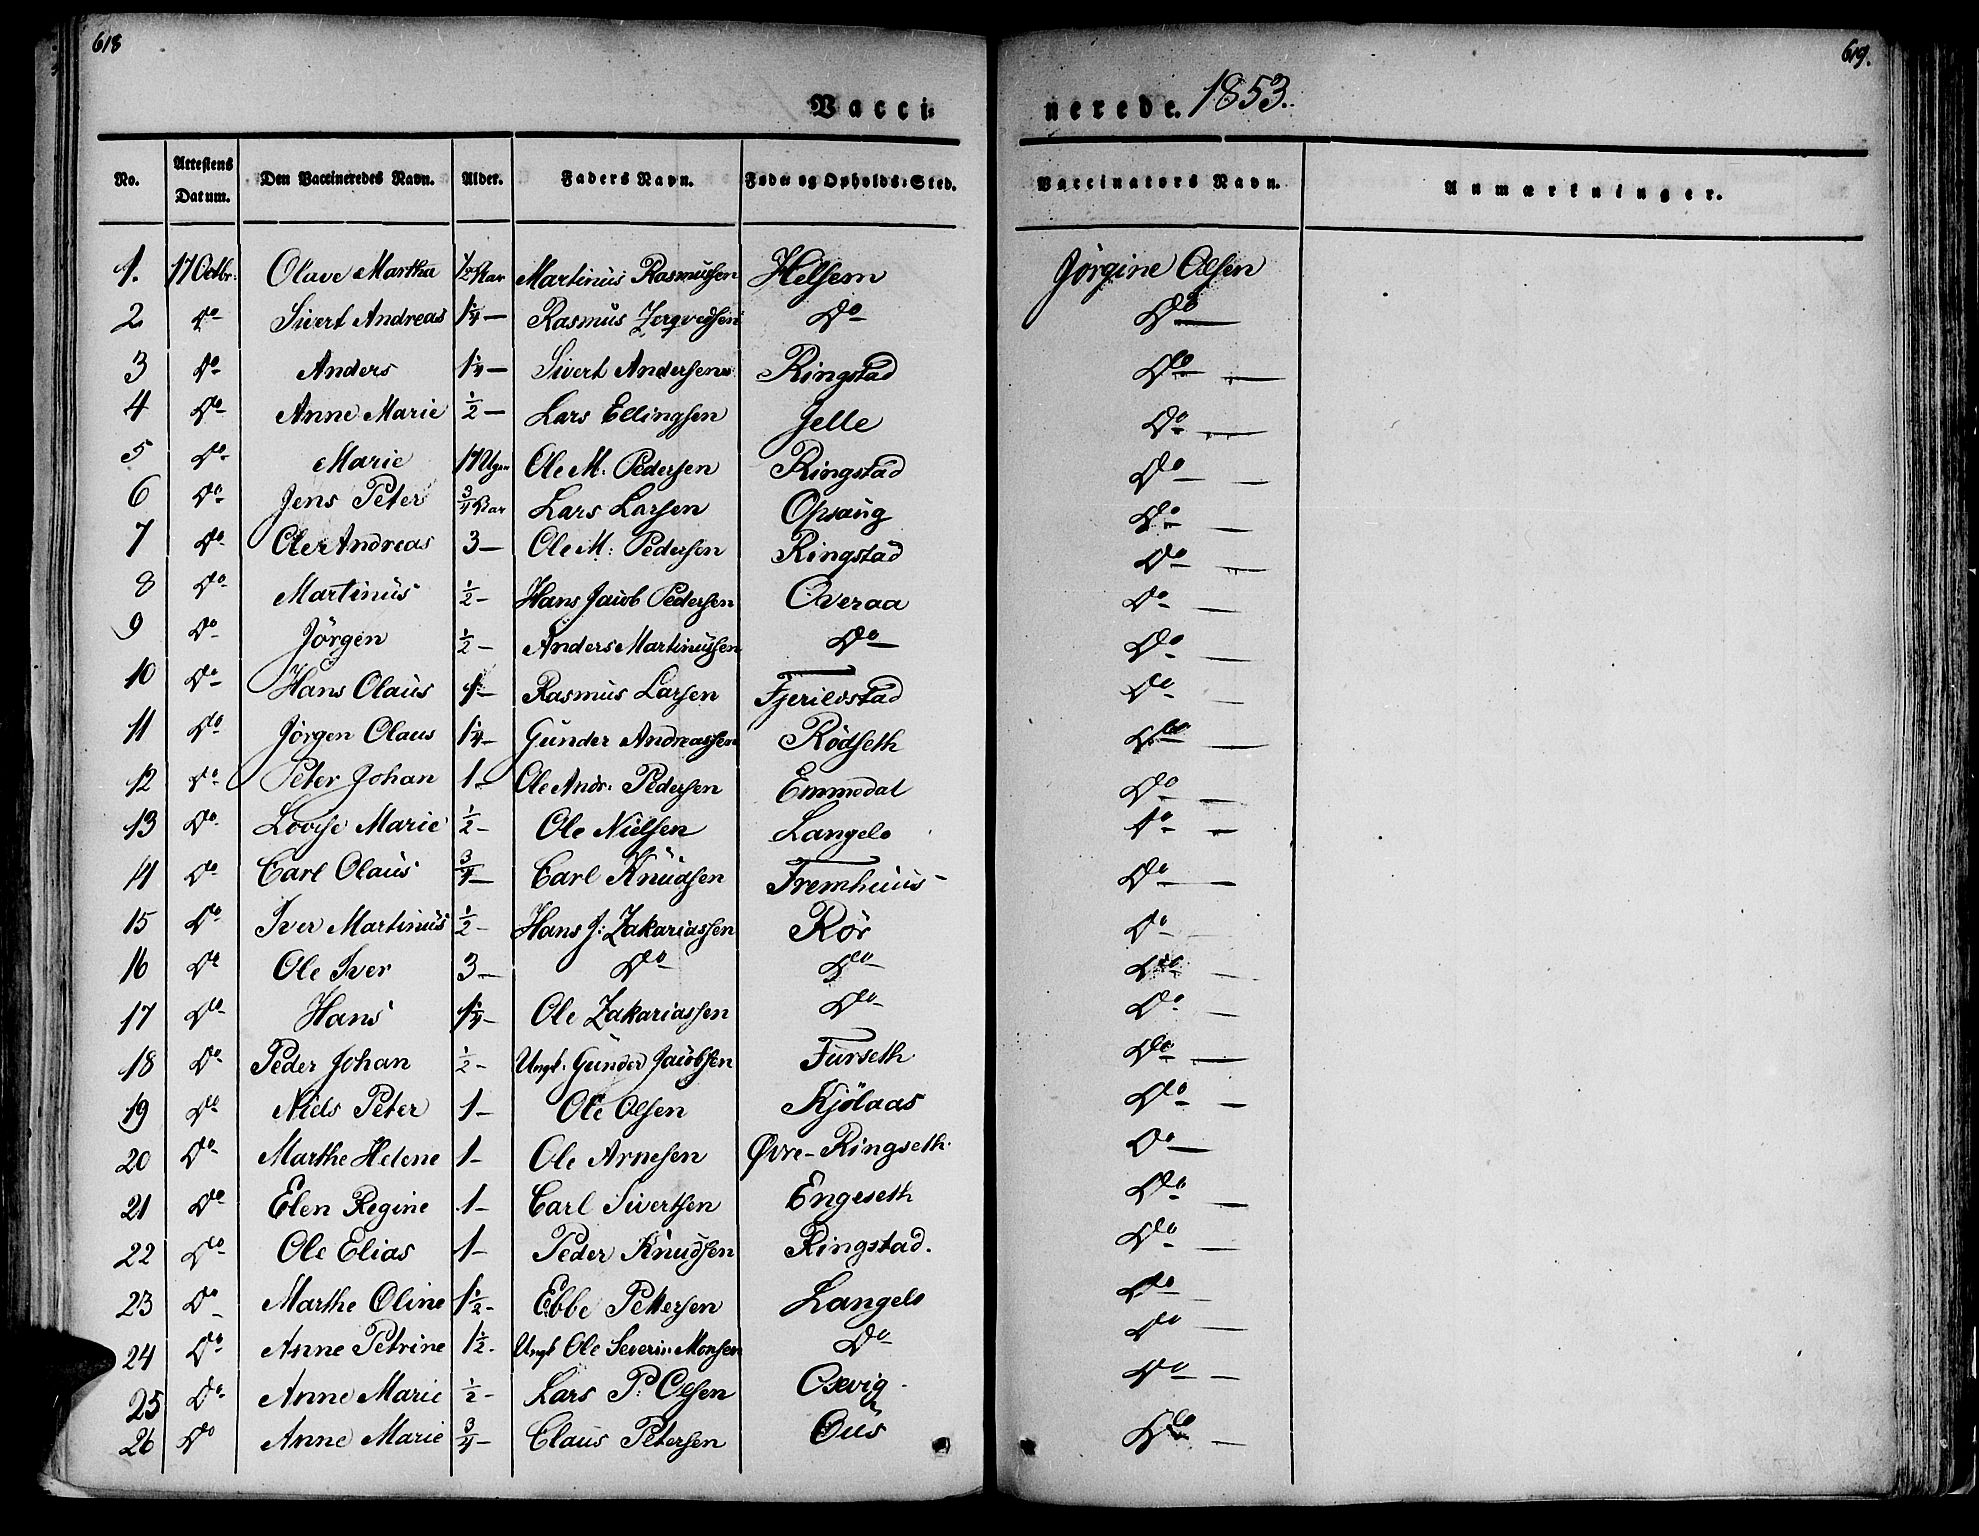 618
619.
Vacci-
nerede. 1853.
No. Attestens Datum. Den Vaccineredes Navn. Alder. Faders Navn. Føde og Opholds-Sted. Vaccinators Navn. Anmærkninger.
1. 17 Octbr: Olave Martha 1/2 Aar Martinus Rasmussen Helsem Jørgine Olsen
2 Do Sivert Andreas 1 1/4 — Rasmus Do Do —
3 Do Anders 1 1/4 — Sivert Andersen Ringstad Do —
4 Do Anne Marie 1/2 — Lars Ellingsen Jelle Do —
5 Do Marie 17 Uger Ole M: Pedersen Ringstad Do —
6 Do Jens Peter 3/4 Aar Lars Larsen Opsaug Do —
7 Do Ole Andreas 3 — Ole M: Pedersen Ringstad Do —
8 Do Martinus 1/2 — Hans Jacob Pedersen Overaa Do —
9 Do Jørgen 1/2 — Anders Martinussen Do Do —
10 Do Hans Olaus 1 — Rasmus Larsen Fjerildstad Do —
11 Do Jørgen Olaus 1 1/4 — Gunder Andreassen Rødseth Do —
12 Do Peter Johan 1 — Ole Andr: Pedersen Emmedal Do —
13 Do Lovise Marie 1/2 — Ole Nielsen Langelo Do —
14 Do Carl Olaus 3/4 — Carl Knudsen Fremhuus Do —
15 Do Iver Martinus 1/2 — Hans J: Zakariassen Rør Do —
16 Do Ole Iver 3 — Do Do Do —
17 Do Hans 1 1/4 — Ole Zakariassen Do Do —
18 Do Peder Johan 1/2 — Ungk. Gunder Jacobsen Furseth Do —
19 Do Niels Peter 1 — Ole Olsen Kjølaas Do —
20 Do Marthe Helene 1 — Ole Arnesen Øvre-Ringseth Do —
21 Do Elen Regine 1 — Carl Sivertsen Engeseth Do —
22 Do Ole Elias 1 — Peder Knudsen Ringstad. Do —
23 Do Marthe Oline 1 1/2 — Ebbe Pettersen Langelo Do —
24 Do Anne Petrine 1 1/2 - Ungk Ole Severin Monsen Do Do —
25 Do Anne Marie 1/2 — Lars P: Olsen Oxevig Do —
26 Do Anne Marie 3/4 — Claus Petersen Øus Do —